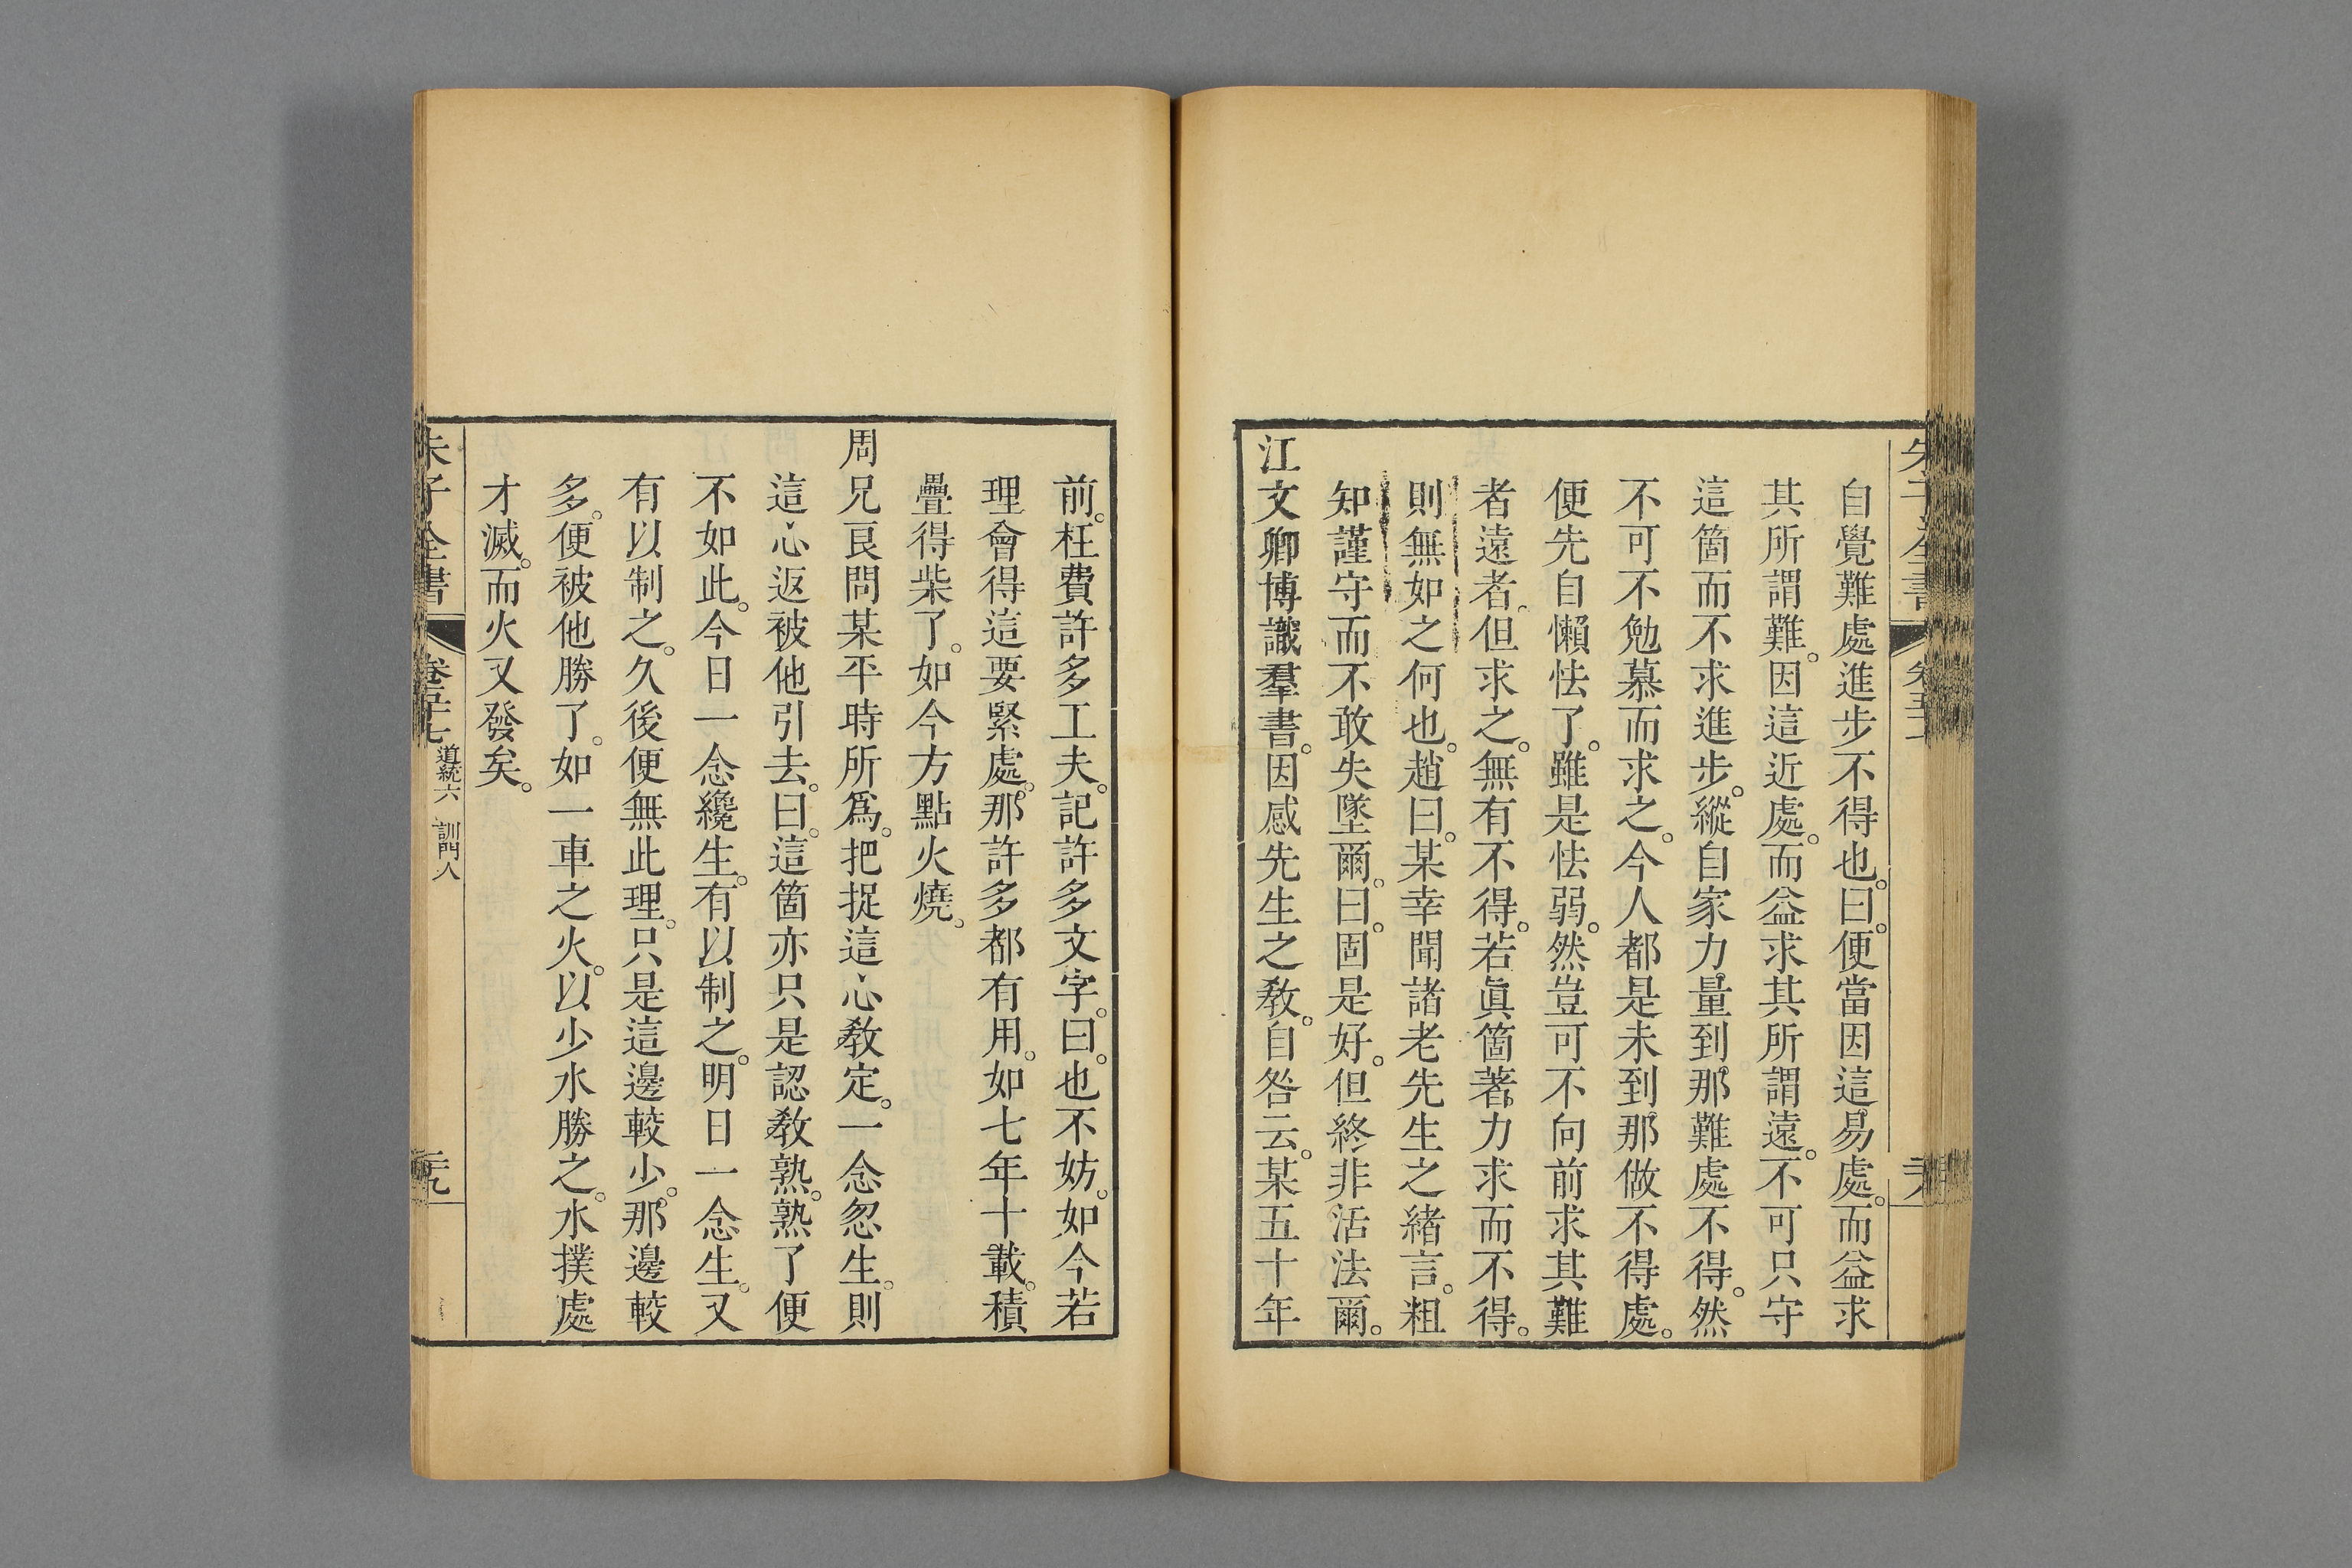 自覺難處進步不得也。曰。便當因這易處。而益求
其所謂難。因這近處。而益求其所謂遠。不可只守
這箇而不求進步。縱自家力量到那難處不得。然
不可不勉慕而求之。今人都是未到那做不得處。
便先自懶怯了。雖是怯弱。然豈可不向前求其難
者遠者。但求之。無有不得。若眞箇著力求而不得。
則無如之何也。趙曰。某幸聞諸老先生之緖言。粗
知謹守而不敢失墜爾。曰。固是好。但終非活法爾。
江文卿博識羣書。因感先生之敎。自咎云。某五十年
前。枉費許多工夫。記許多文字。曰。也不妨。如今若
理會得這要緊處。那許多都有用。如七年十載。積
疊得柴了。如今方點火燒。
周兄良問某平時所爲。把捉這心敎定。一念忽生。則
這心返被他引去。曰。這箇亦只是認敎熟。熟了便
不如此。今日一念纔生。有以制之。明日一念生。又
有以制之。久後便無此理。只是這邊較少。那邊較
多。便被他勝了。如一車之火。以少水勝之。水撲處
才滅。而火又發矣。
朱子全書 卷五十七 道統六 訓門人 二十九